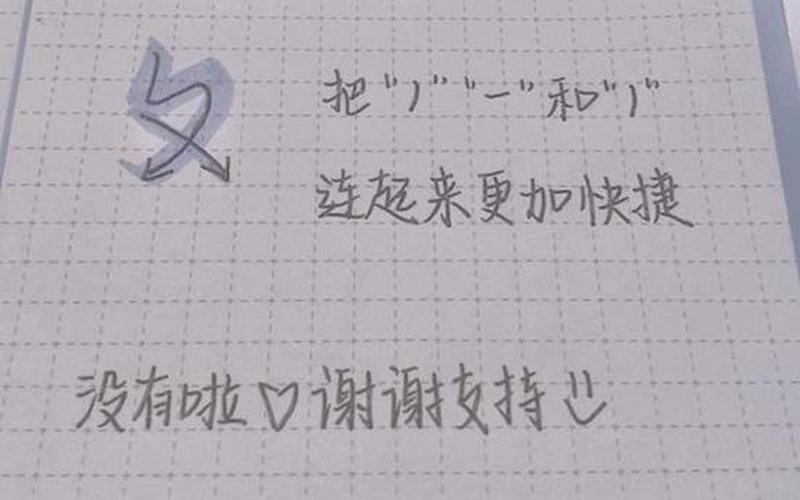 攵
把"丿""一"和"丿"
连起来更加快捷
没有啦♡谢谢支持